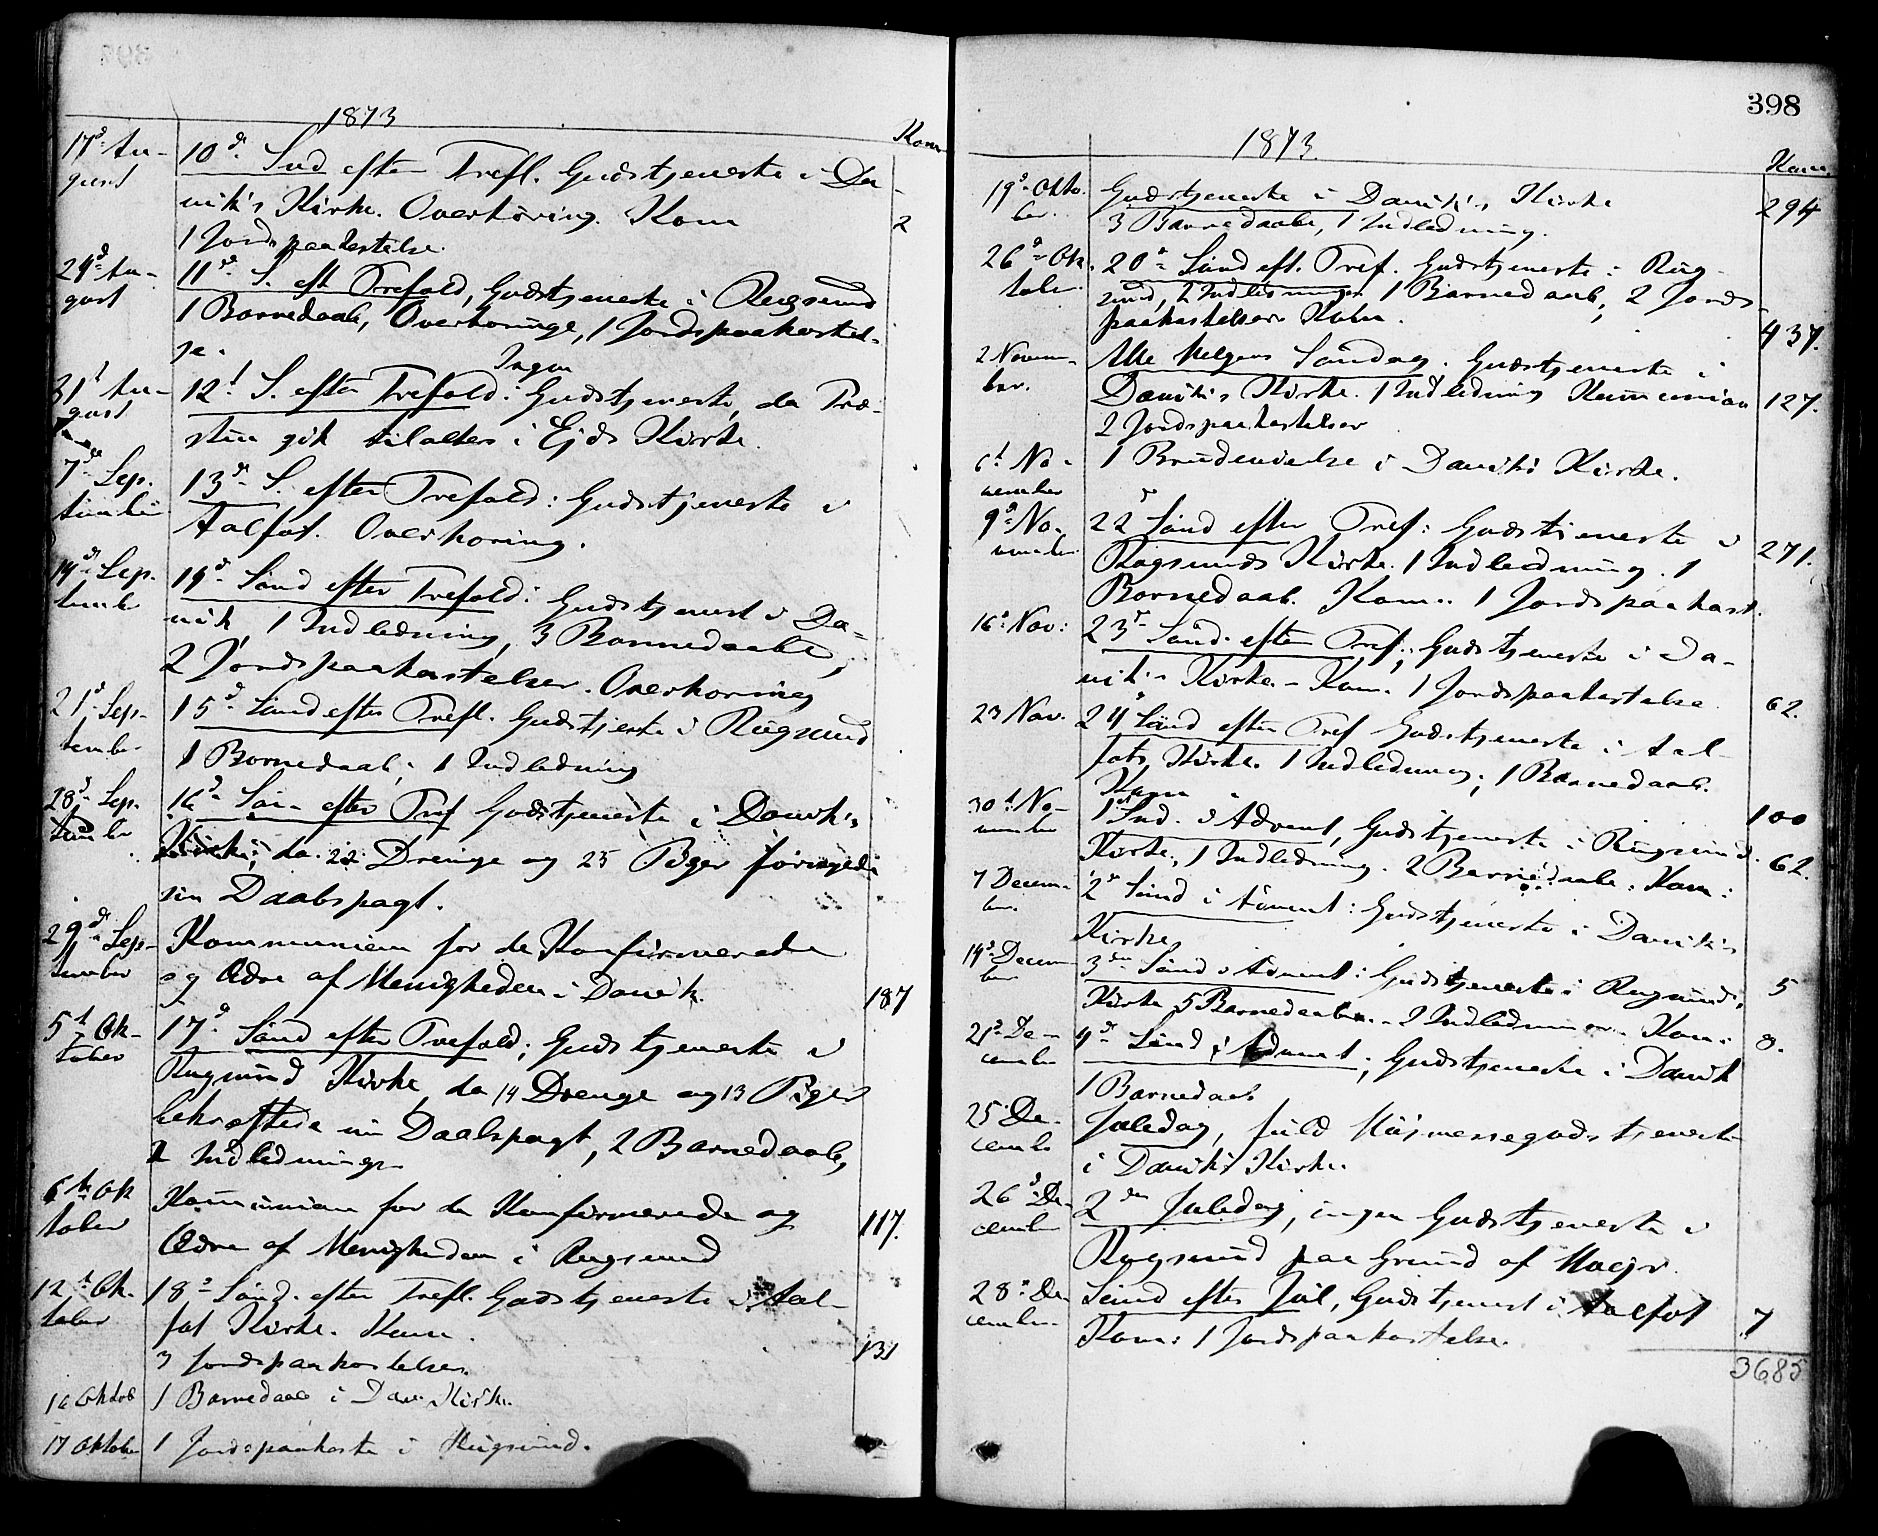 398
1873
Kom
17d Au-
gust
10d Snd efter Trefl. Gudstjeneste i Da
vik's Kirke. Overhöring. Kom
2
1 Jordspaakastelse.
24d Au-
gust
11d S. eft Trefold, Gudstjeneste i Rugsund
1 Barnedaab, Overhoringe, 1 Jordspaakastel-
se.
Ingen
31t Au-
gust
12t S. efter Trefold: Gudstjeneste, da Præ-
sten gik tilalters i Ejds Kirke.
7de Sep-
tember
13d S. efter Trefold: Gudstjeneste i
Aalfot. Overhoring.
14d Sep-
tembr
14d Sönd efter Trefold: Gudstjenest i Da-
vik 1 Indledning, 3 Barnedaabe,
2 Jordspaakastelser. Overhoring
21d Sep-
tembr
15d Sönd efter Trefl. Gudstjeneste i Rugsund
1 Barnedaab; 1 Indledning
28d Sep-
tembr
16d Sön efter Tref Gudstjeneste i Davik's
Kirke, da 22 Drenge og 25 Piger fornyede
sin Daabspagt.
29d Sep-
tember
Kommunion for de Konfirmerede
og Ædre af Menigheden i Davik.
187
5t Ok-
tober
17d Sönd efter Trefold; Gudstjeneste i
Rugsund Kirke, da 14 Drenge og 13 Piger
bekræftede sin Daabspagt, 2 Barnedaab,
2 Indledninge
6te Ok
tober
Kommunion for de Konfirmerede og
Ædre af Menigheden i Rugsund
117.
12t Ok-
tober
18d Sönd. efter Trefl. Gudstjeneste i Aal-
fot Kirke. Kom.
131
3 Jordspaakastelser.
16 Oktob
1 Barnedaab i Dav. Kirke.
17 Oktober
1 Jordspaakaste i Rugsund.
398
1873.
Kom.
19d Okto.
ber.
Gudstjeneste i Davik's Kirke
294
3 Barnedaabe, 1 Indledning.
26d Ok.
tober
20d Sönd eft. Tref. Gudstjeneste i Rug-
sund, 2 Indledninger 1 Barnedaab, 2 Jords
paakastelser Kom.
437.
2 Novem-
ber.
Alle Helgens Söndag. Gudstjeneste i
Davik's Kirke. 1 Indledning Kommunion
127.
2 Jordspaakastelser
6t No-
vember
1 Brudevielse i Daviks Kirke.
9d No-
vember
22d Sönd efter Tref: Gudstjeneste i
Rugsunds Kirke. 1 Indledning. 1
271.
Barnedaab. Kom.. 1 Jordspaakast.
16d Nov:
23d Sönd. efter Tref.; Gudstjeneste i Da-
vik's Kirke. - Kom. 1 Jordspaakastelse.
62.
23 Nov.
24d Sönd efter Tref Gudstjeneste i Aal-
fots Kirke. 1 Indledning; 1 Barnedaab.
Kom
100
30t No-
vember
1st Snd. i Advent, Gudstjeneste i Rugsund.
Kirke, 1 Indledning. 2 Barnedaabe. Kom:
62.
7 Decem-
ber.
2d Sönd i Advent: Gudstjeneste i Davik's
Kirke
14d Decem
ber
3die Sönd i Advent: Gudstjeneste i Rugsund's
5
Kirke 5 Barnedaabe. - 2 Indledninger. Kom:
21d De-
cember
4d Sönd i Advent; Gudstjeneste i Davik
8.
1 Barnedaab
25 De-
cembr
Juledag, fuld Höjmessegudstjeneste
i Daviks Kirke.
26d De-
cember
2den Juledag, ingen Gudstjeneste i
Rugsund paa Grund af Uvejr.
28d De
cember
Sönd efter Jul, Gudstjenest i Aalfot
7
Kom: 1 Jordspaakastelse.
3685